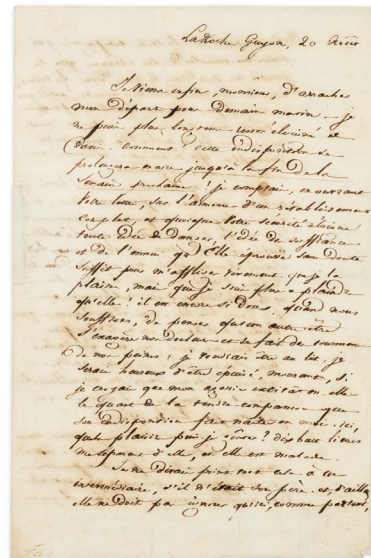 LaRoche Guyon, 20
enfin, monsieur, d'arracher
mon départ pour demain matin. je
ne puis plus
Comment! cette indisposition se
prolongera encore jusqu'à la fin de la
semaine prochaine! je comptais, en ouvrant
votre lettre, sur l'annonce d'un rétablissement
complet, et quoique votre
toute idée de danger, l'idée de souffrance
et de l'ennui qu'Elle éprouve sans doute
suffit pour m'affliger vivement. que je la
plains, mais que je suis plus à plaindre
qu'elle! il est encore si doux, quand nous
souffrons, de penser qu'un autre être
s'exagère nos douleurs et se fait de tourment
de nos peines! je voudrais être au lit, je
serais heureux d'être épuisé, mourant, si
je croyais que mon agonie excitât en elle
le quart de la tendre compassion que
son indisposition fait naître en moi. ici,
quel plaisir puis-je goûter? dix huit lieues
me séparent d'elle, et elle est malade.
Je ne dirais point tout cela à un
intermédiaire, s'il n'était son père. et, d'ailleurs
elle ne doit pas